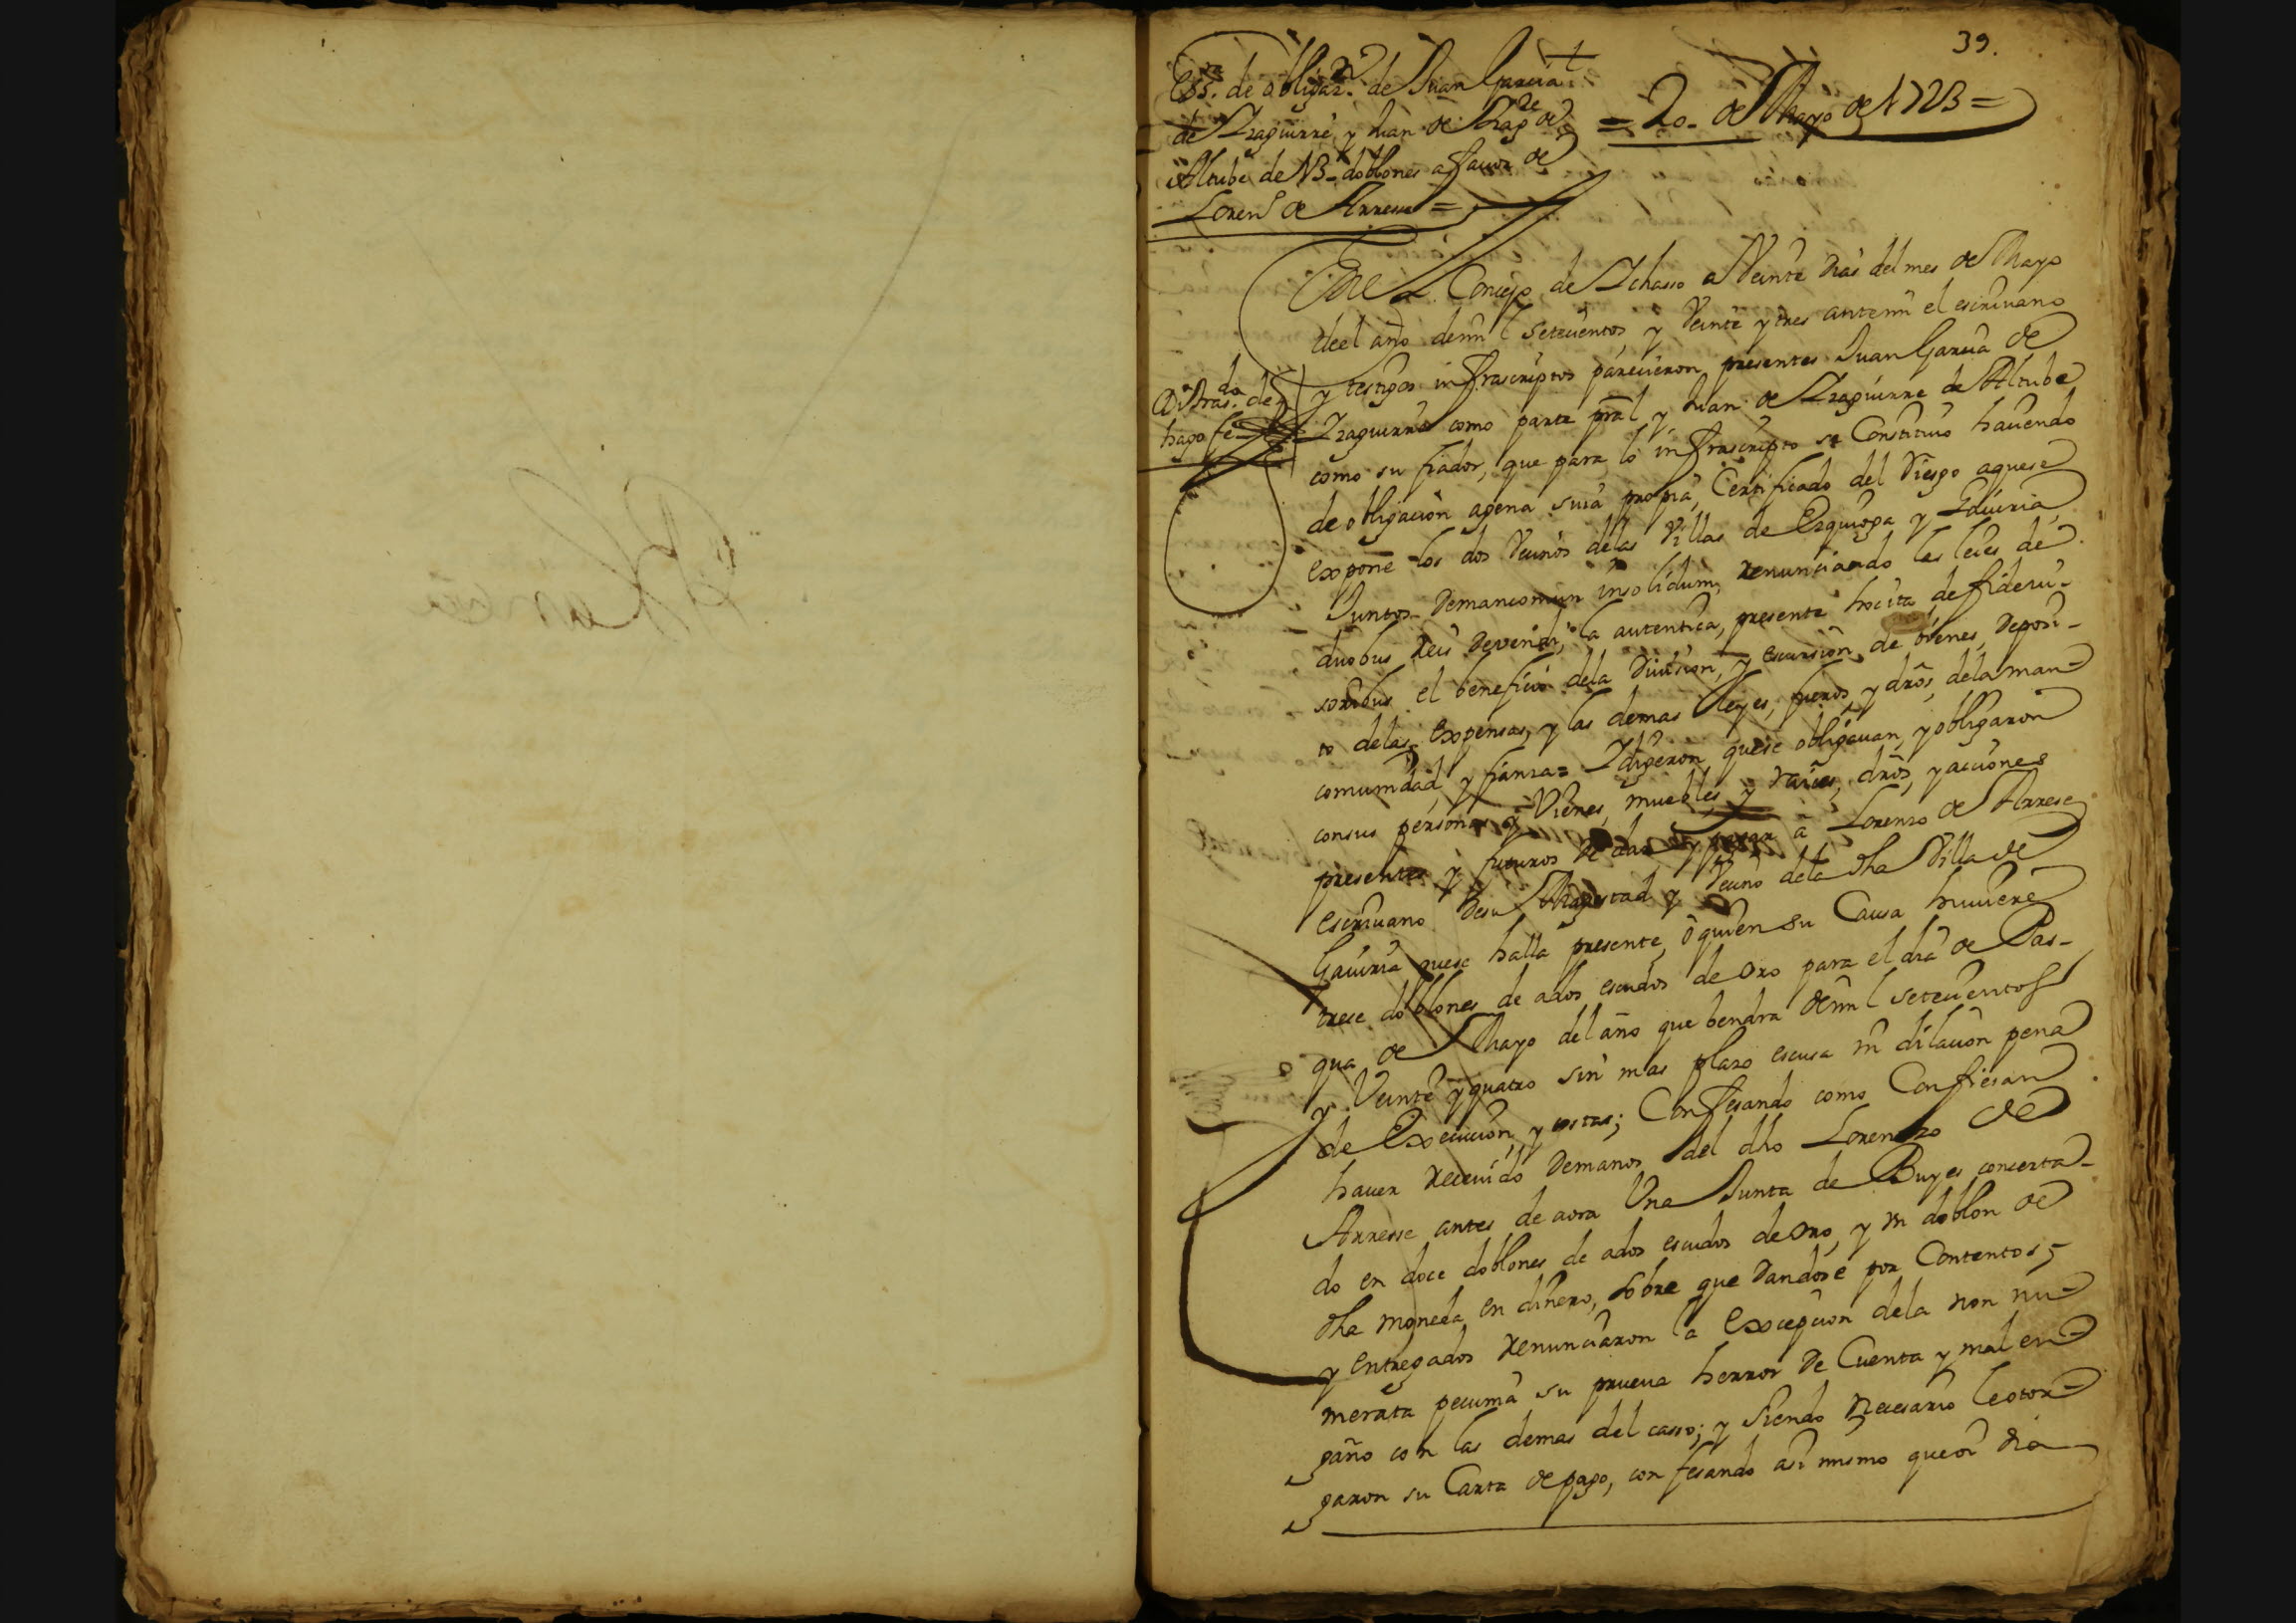 39.
Ess.ra de obligaz.on de Juan Garcia
de Yzaguirre, y Juan de Yzag.re de
Altube de 13 doblones a favor de
Lorenº de Arrese =
= 20 de Mayo de 1723 =
En el Concejo de Ychasso a Veinte dias del mes de Mayo
deel año demill setecientos, y Veinte y tres antemi el escrivano
y testigos infrascriptos parecieron presentes Juan Garcia de
Yzaguirre como parte prâl y Juan de Yzaguirre de Altube
como su fiador, que para lo infrascripto se Constituio haviendo
de obligacion agena suia propia, Certificado del Riesgo aquese
expone los dos Vecinos delas Villas de Ezquioga y Gaviria
Juntos Demancomun insolidum, renunciando las leies de
duobus Reis devendi, la autentica, presente hocita, de fideiu-
soribus el beneficio dela Division, y escursion de vienes, Deposi-
to delas expensas, y las demas leyes, fueros, y drôs, dela man
comunidad, y fianza = Y digeron quese obligavan, y obligaron
consus personas y Vienes, muebles, y raices, drôs, y aciones
presentes y futuros de dar y pagar â Lorenzo de Arrese
escrivano Desu Magestad y Vecino dela dha Villa de
Gaviria quese halla presente, ô quien su Causa huviere
trece doblones de ados escudos de Oro para el dia de Pas-
qua de Mayo del año que bendra demill setecientos
y Veinte y quatro sin mas plazo escusa ni dilacion pena
de Execucion, y costas; Confesando como Confiesan
haver Recevido Demanos del dho Lorenzo de
Arresse antes de aora Una Junta de Buyes concerta-
do en doce doblones de ados escudos de Oro, y un doblon de
dha moneda en dinero, sobre que Dandose por Contentos,
y entregados Renunciaron la excepcion dela non nu-
merata pecunia su prueva herror de Cuenta y mal en
gaño con las demas del casso; y siendo necesario le otor-
garon su Carta de pago, confesando asi mismo queoi dia
Di Tras.do de
hago fe